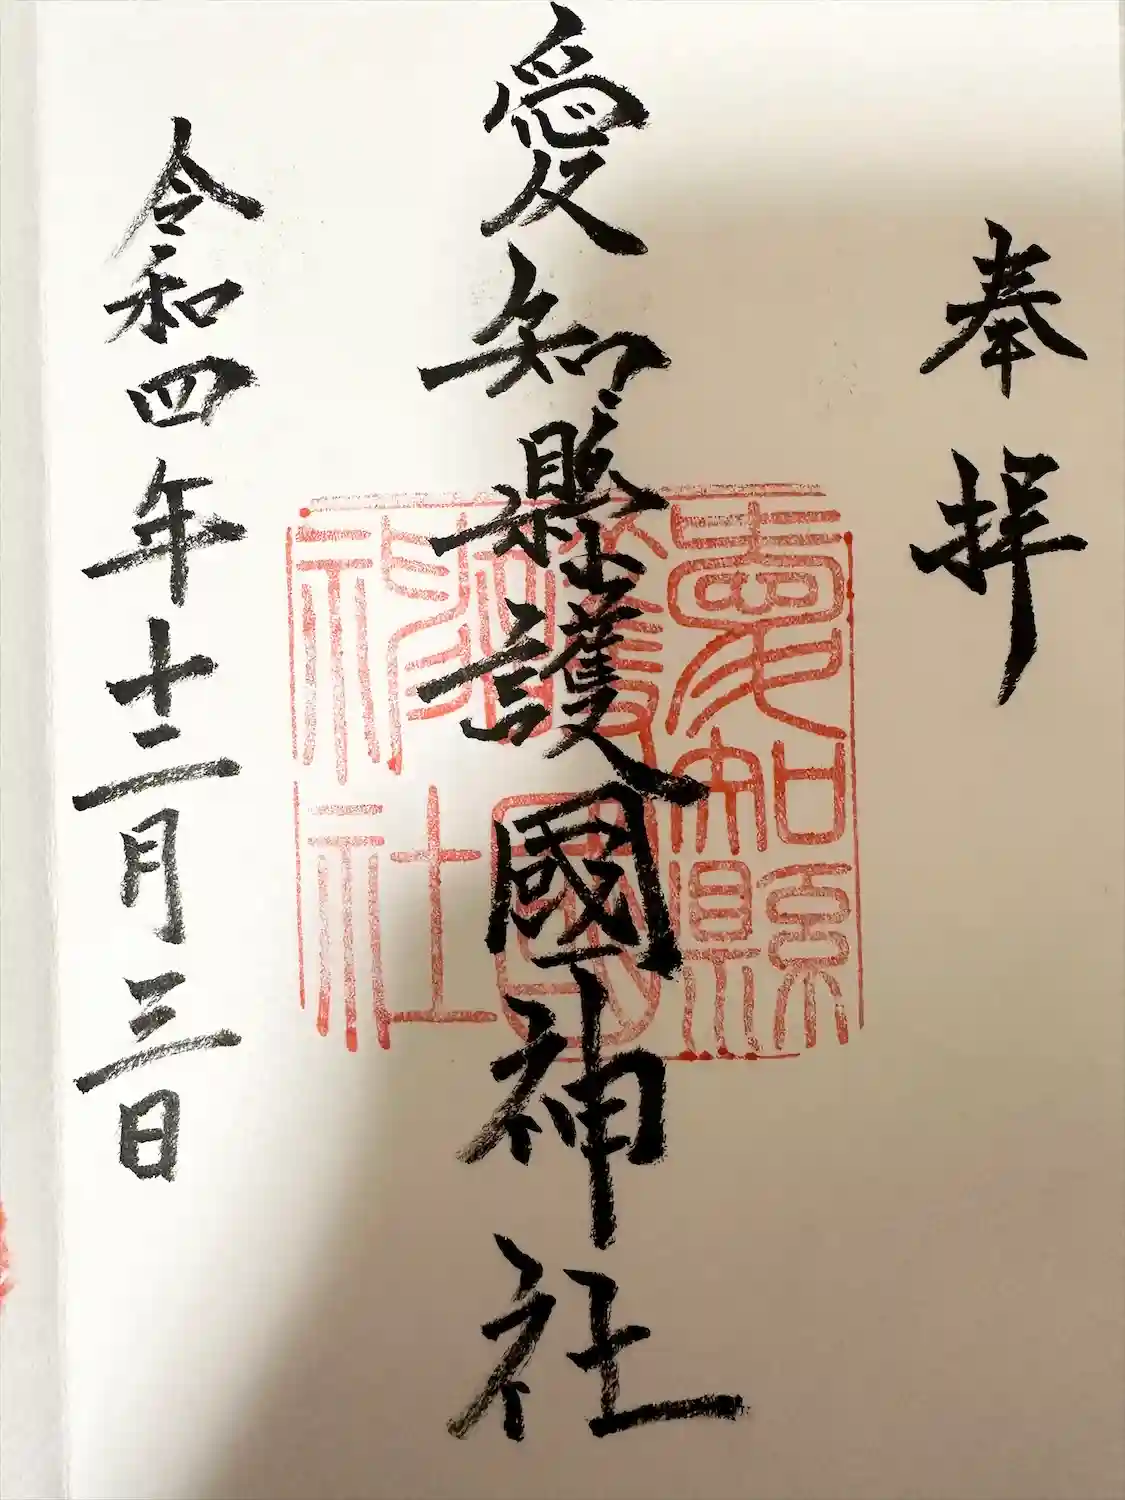 奉拝
愛知縣護國神社
愛知縣護國神社
令和四年十二月三日